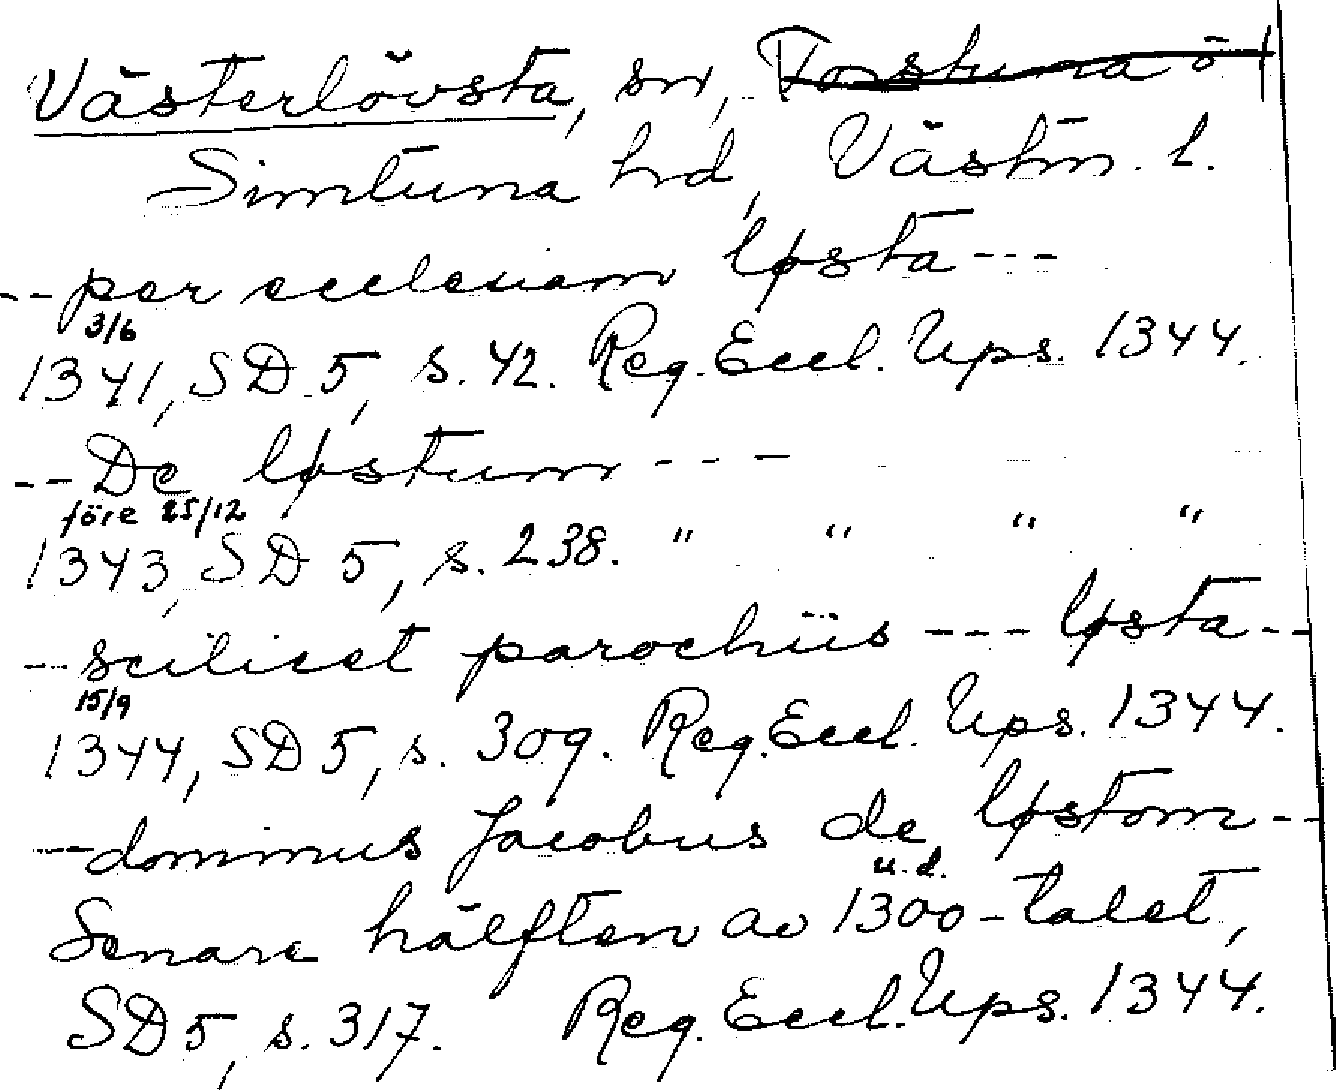 Västerlövsta, sn, Torstuna o
Simtuna hd, Västm. l.
-- per ecclesiam løsta ---
3/6
1341, SD 5, s. 42. Reg. Eccl. Ups. 1344.
-- De løstum ---
före 25/12
1343, SD 5, s. 238. " " " "
-- scilicet parochiis --- løsta --
15/9
1344, SD 5, s. 309. Reg. Eccl. Ups. 1344.
-- dominus Jacobus de løstom --
u. d.
Senare hälften av 1300-talet,
SD 5, s. 317. Reg. Eccl. Ups. 1344.